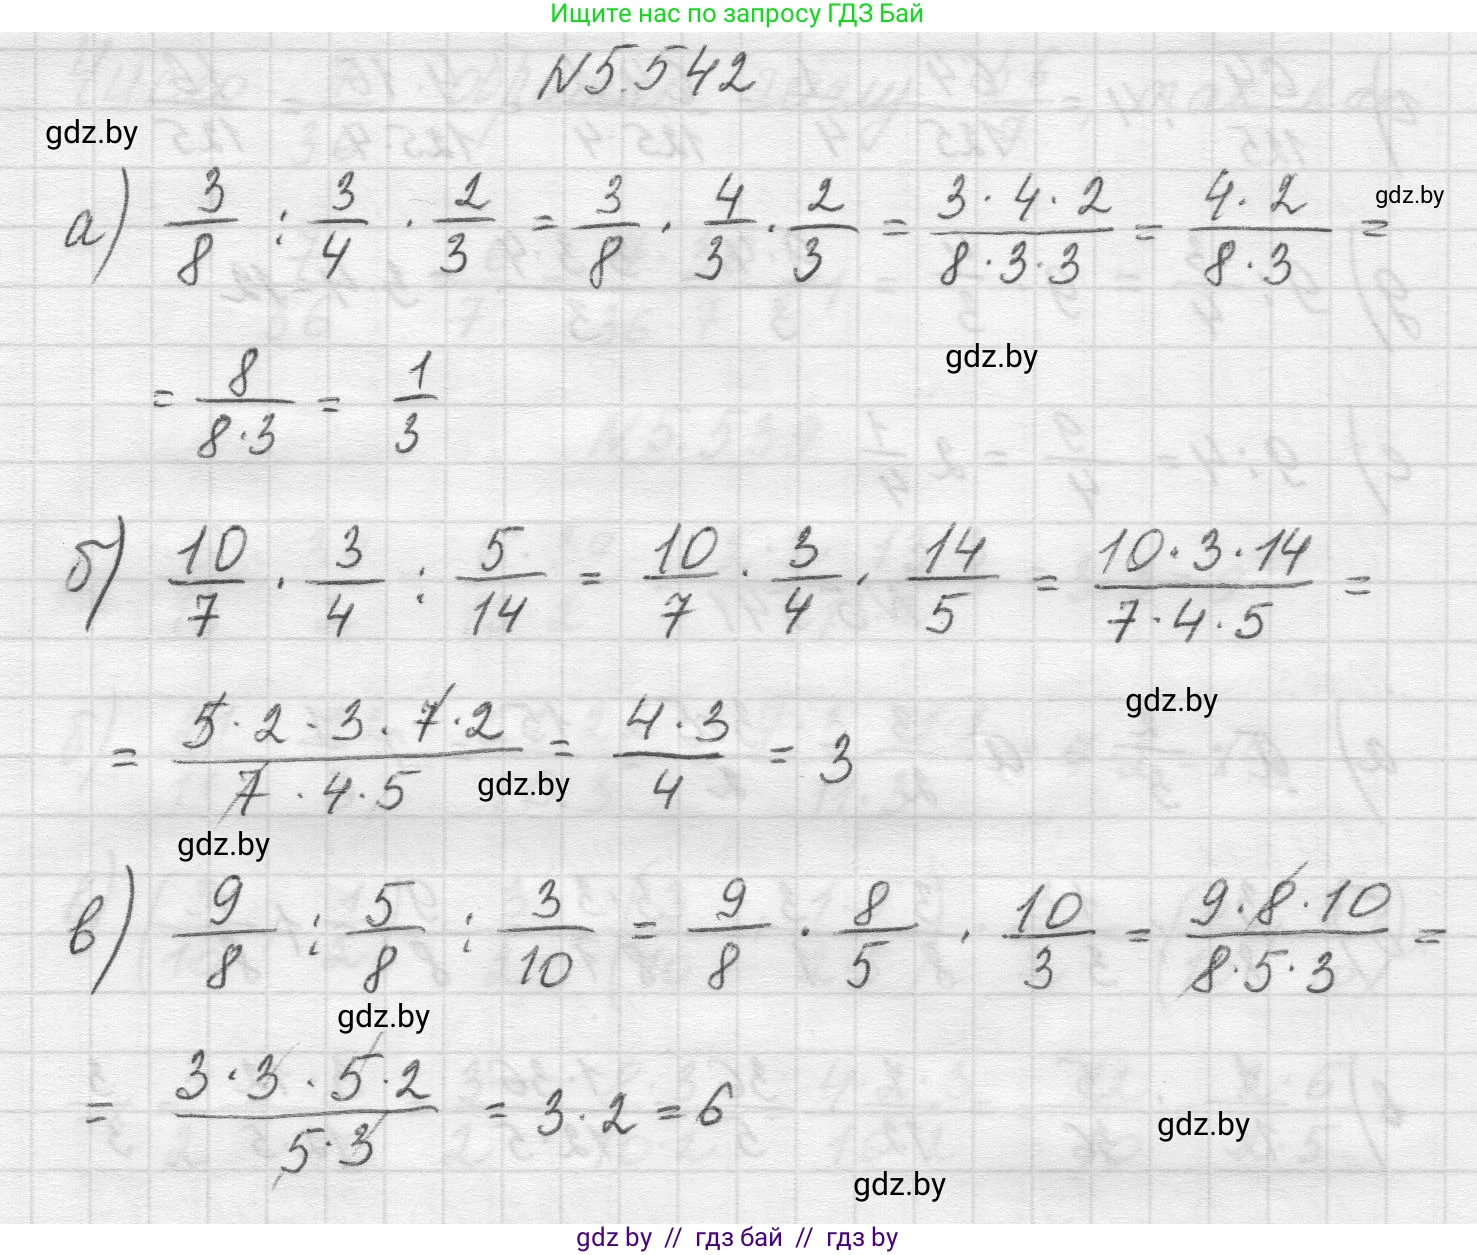 Ищите нас по запросу ГДЗ Бай
N5.542
gdz.by
а) 3/8 : 3/4 · 2/3 = 3/8 · 4/3 · 2/3 = (3·4·2)/(8·3·3) = (4·2)/(8·3) =
gdz.by
= 8/(8·3) = 1/3
gdz.by
б) 10/7 · 3/4 : 5/14 = 10/7 · 3/4 · 14/5 = (10·3·14)/(7·4·5) =
= (5·2·3·7·2)/(7·4·5) = (4·3)/4 = 3
gdz.by
gdz.by
gdz.by
в) 9/8 : 5/8 : 3/10 = 9/8 · 8/5 · 10/3 = (9·8·10)/(8·5·3) =
gdz.by
= (3·3·5·2)/(5·3) = 3·2 = 6
gdz.by
gdz.by
gdz by // гдз бай // гдз by